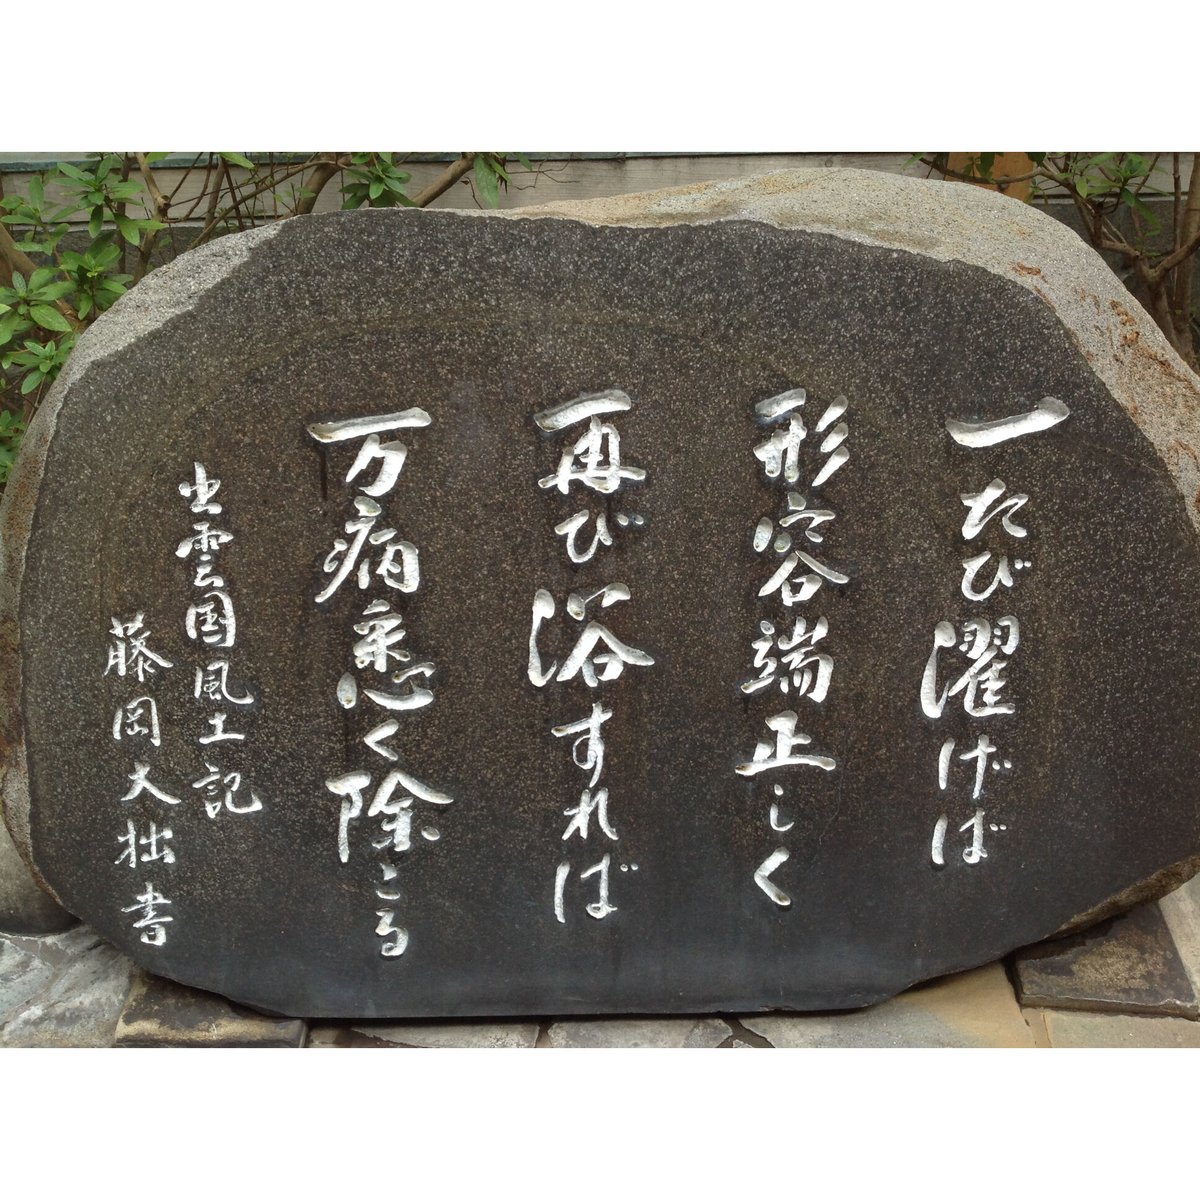 一たび濯げば
形容端正しく
再び浴すれば
万病悉く除こる
出雲国風土記
藤岡大拙書